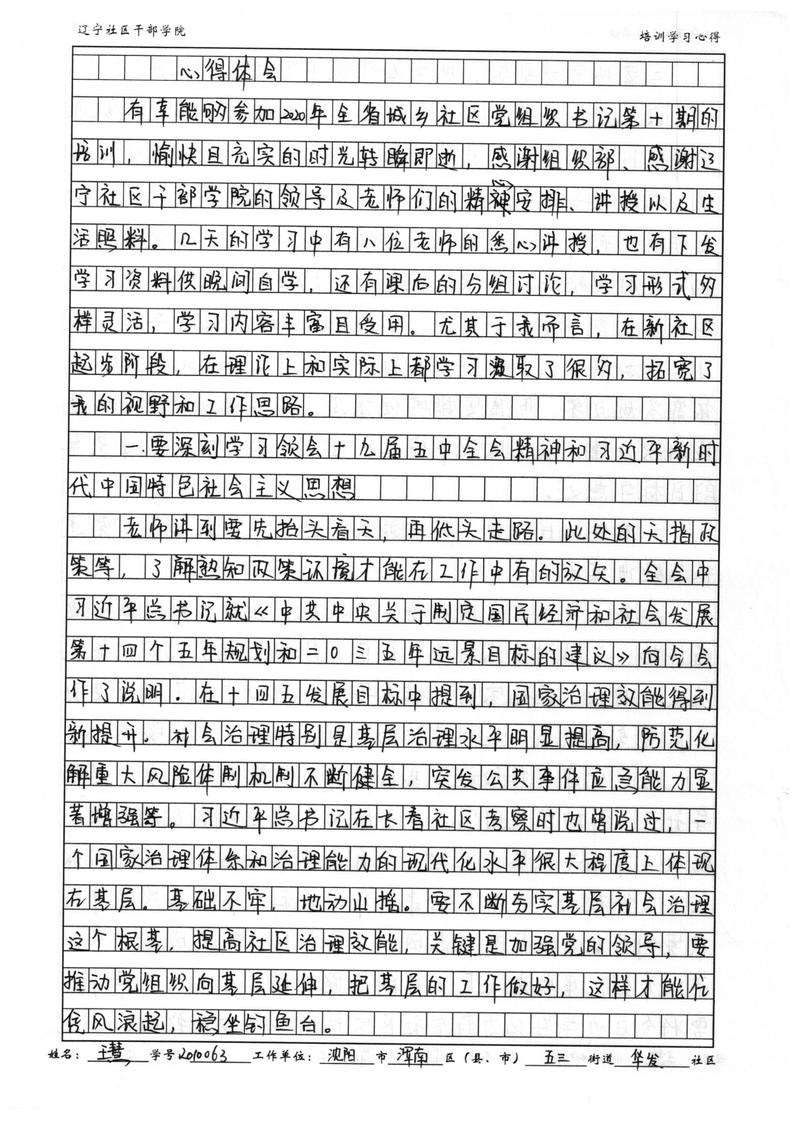 辽宁社区干部学院 培训学习心得
心得体会
有幸能够参加2020年全省城乡社区党组织书记第十期的
培训，愉快且充实的时光转瞬即逝，感谢组织部、感谢辽
宁社区干部学院的领导及老师们的精心安排、讲授以及生
活照料。几天的学习中有八位老师的悉心讲授，也有下发
学习资料供晚间自学，还有课后的分组讨论，学习形式多
样灵活，学习内容丰富且受用。尤其于我而言，在新社区
起步阶段，在理论上和实际上都学习汲取了很多，拓宽了
我的视野和工作思路。
一.要深刻学习领会十九届五中全会精神和习近平新时
代中国特色社会主义思想
老师讲到要先抬头看天，再低头走路。此处的天指政
策等，了解熟知政策环境才能在工作中有的放矢。全会中
习近平总书记就《中共中央关于制定国民经济和社会发展
第十四个五年规划和二〇三五年远景目标的建议》向全会
作了说明．在十四五发展目标中提到，国家治理效能得到
新提升。社会治理特别是基层治理水平明显提高，防范化
解重大风险体制机制不断健全，突发公共事件应急能力显
著增强等。习近平总书记在长春社区考察时也曾说过，一
个国家治理体系和治理能力的现代化水平很大程度上体现
在基层。基础不牢，地动山摇。要不断夯实基层社会治理
这个根基，提高社区治理效能，关键是加强党的领导，要
推动党组织向基层延伸，把基层的工作做好，这样才能任
凭风浪起，稳坐钓鱼台。
姓名：王慧 学号2010063 工作单位：沈阳 市 浑南 区（县、市） 五三 街道 华发 社区